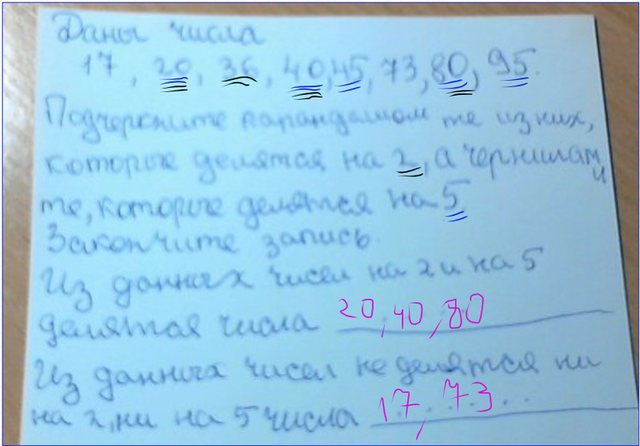 Даны числа
17, 20, 36, 40, 45, 73, 80, 95.
Подчеркните карандашом те из них,
которые делятся на 2, а чернилами
те, которые делятся на 5
Закончите запись.
Из данных чисел на 2 и на 5
делятся числа 20, 40, 80
Из данных чисел не делятся ни
на 2, ни на 5 числа 17, 73...